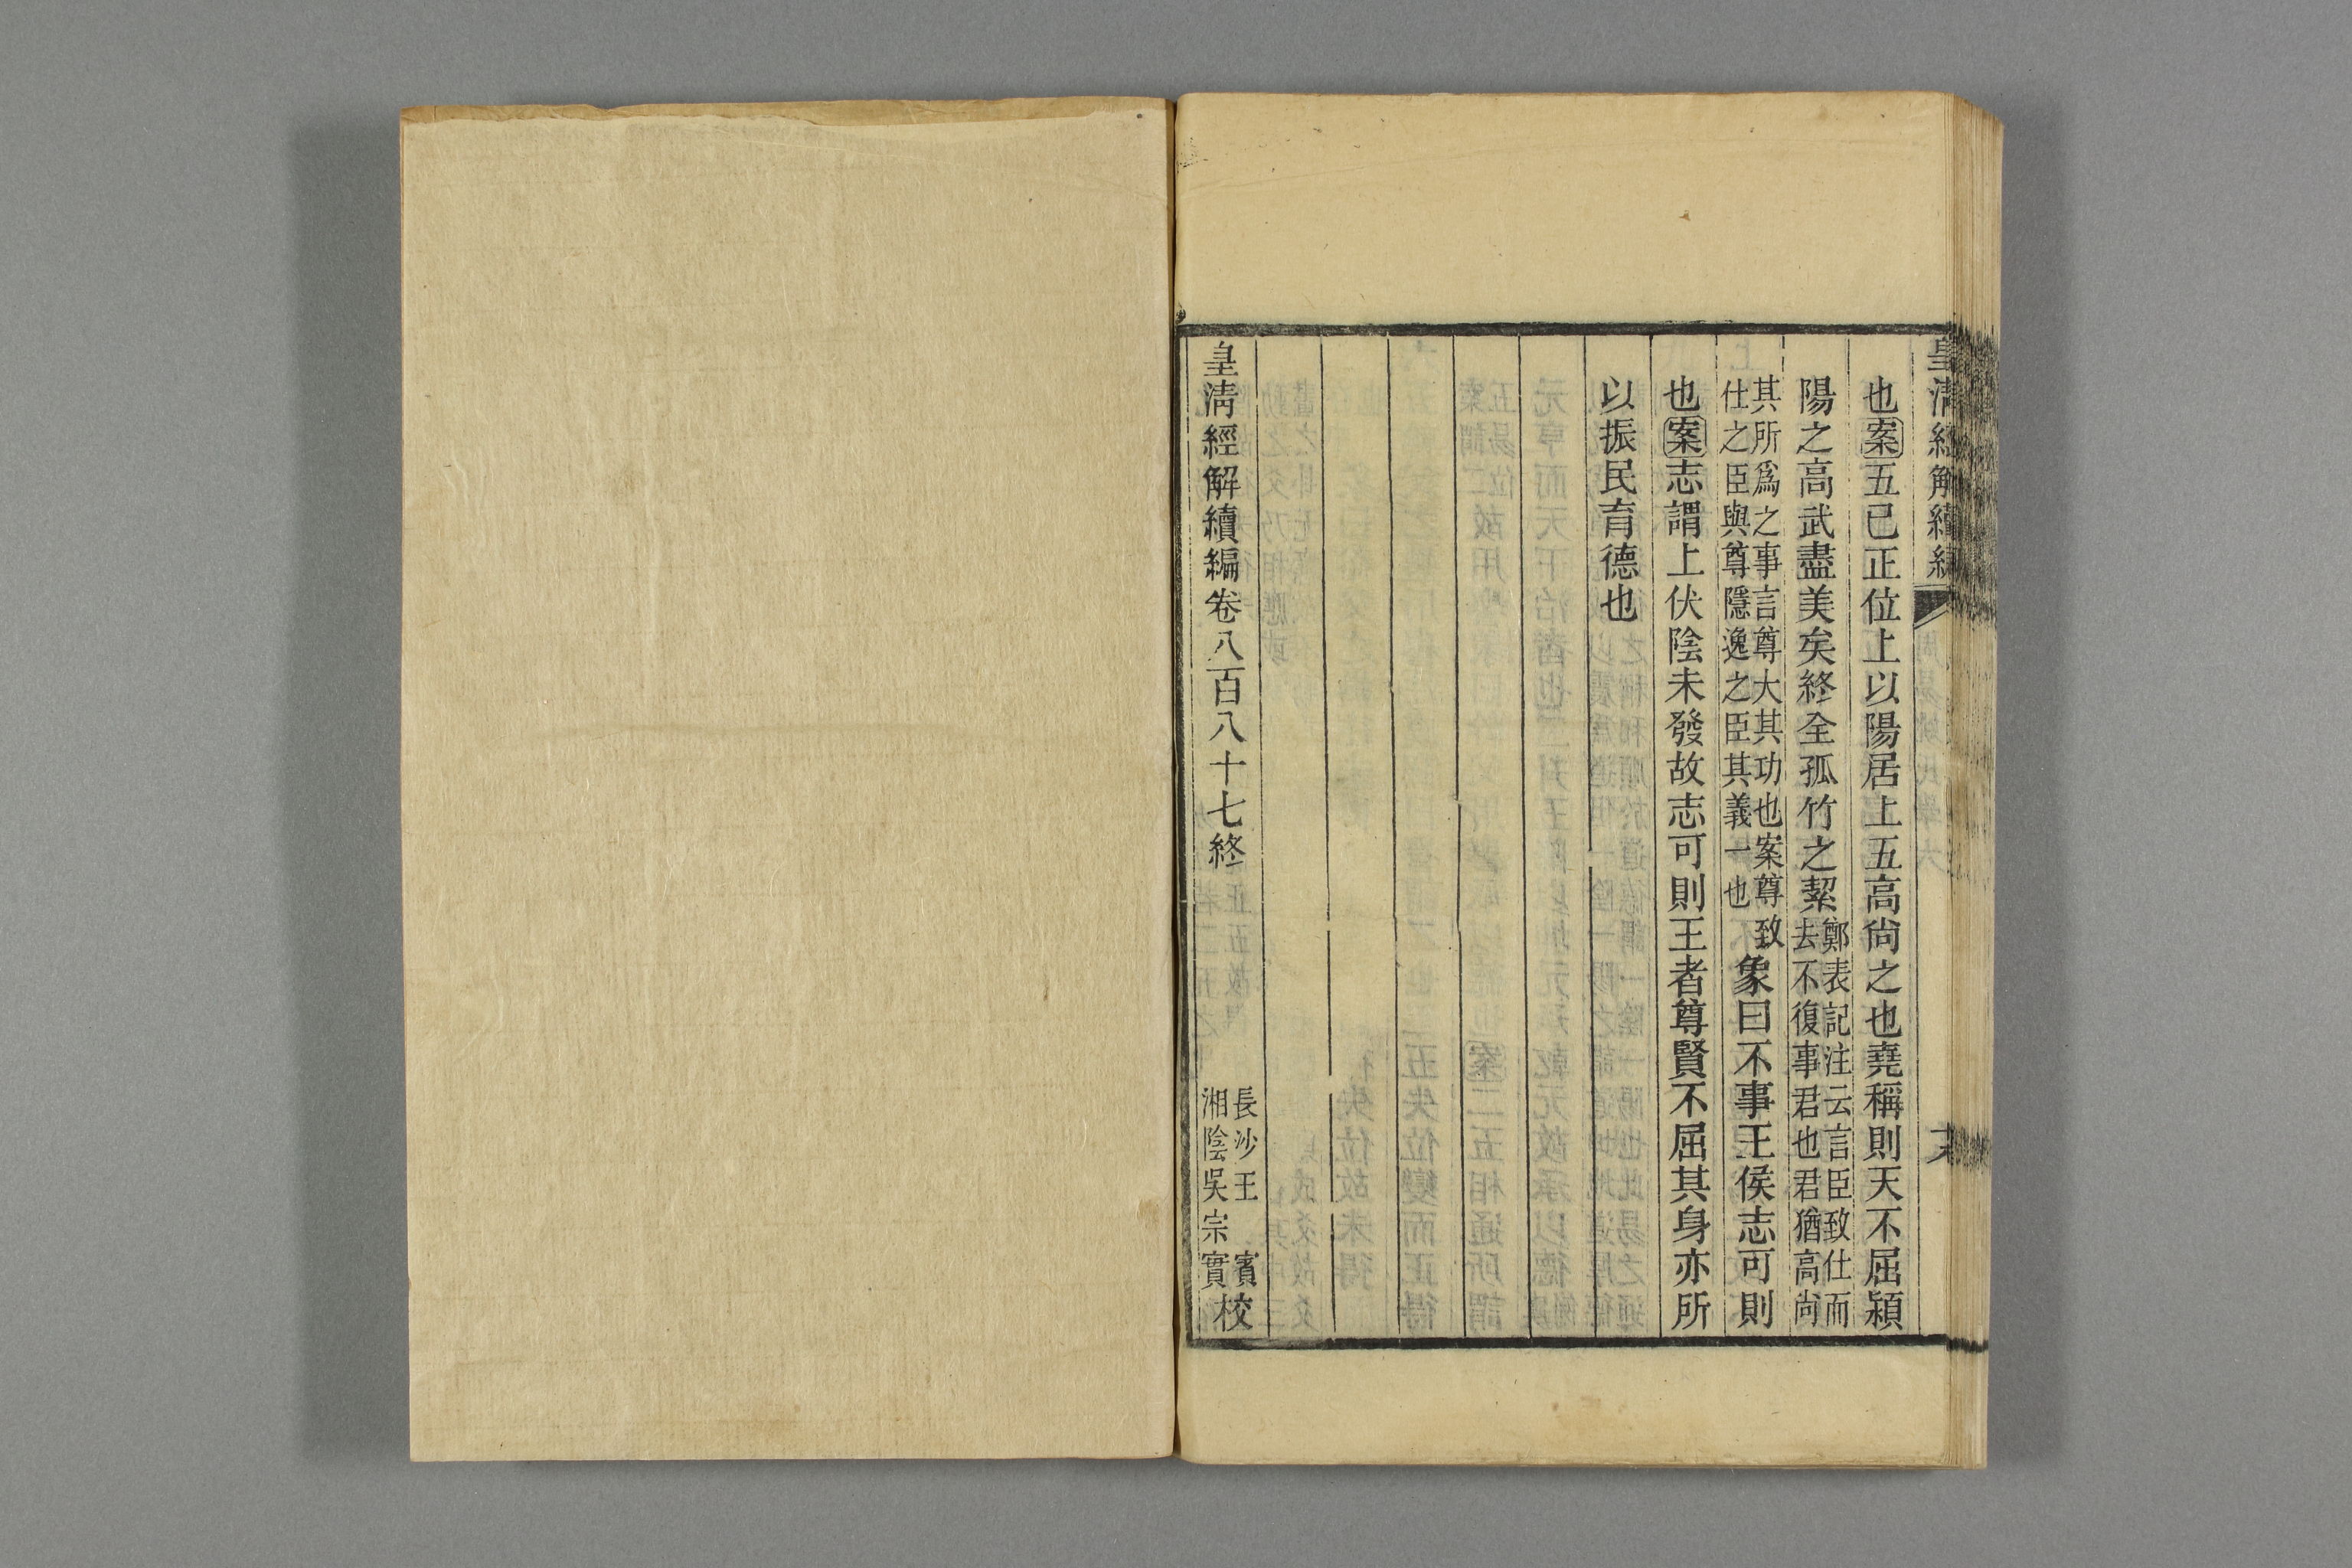 皇淸經解續編
也案五已正位上以陽居上五高尙之也堯稱則天不屈潁
陽之高武盡美矣終全孤竹之絜鄭表記注云言臣致仕而去不復事君也君猶高尙
其所爲之事言尊大其功也案尊致仕之臣與尊隱逸之臣其義一也象曰不事王侯志可則
也案志謂上伏陰未發故志可則王者尊賢不屈其身亦所
以振民育德也
皇淸經解續編卷八百八十七終
長沙王賓
湘陰吳宗實校